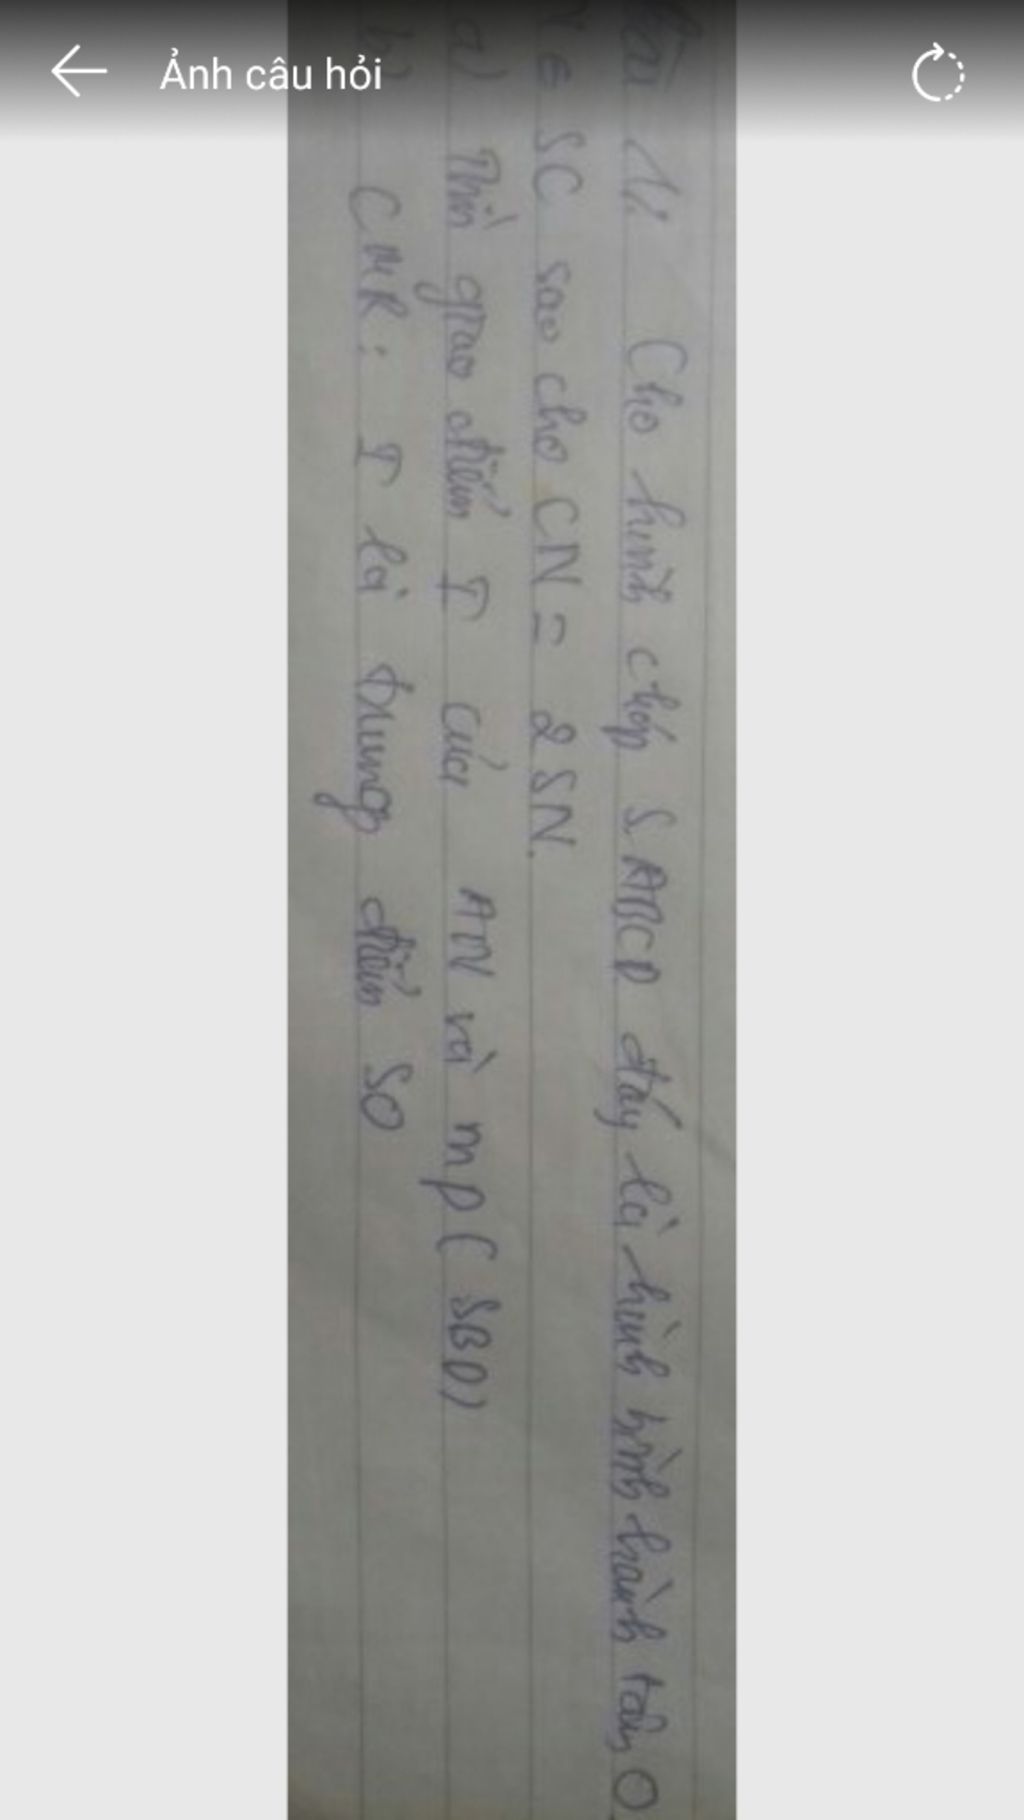 Ảnh câu hỏi
Câu 1: Cho hình chóp S.ABCD đáy là hình bình hành tâm O.
N ∈ SC sao cho CN = 2SN.
a) Tìm giao điểm I của AN và mp (SBD)
b) CMR: I là trung điểm SO